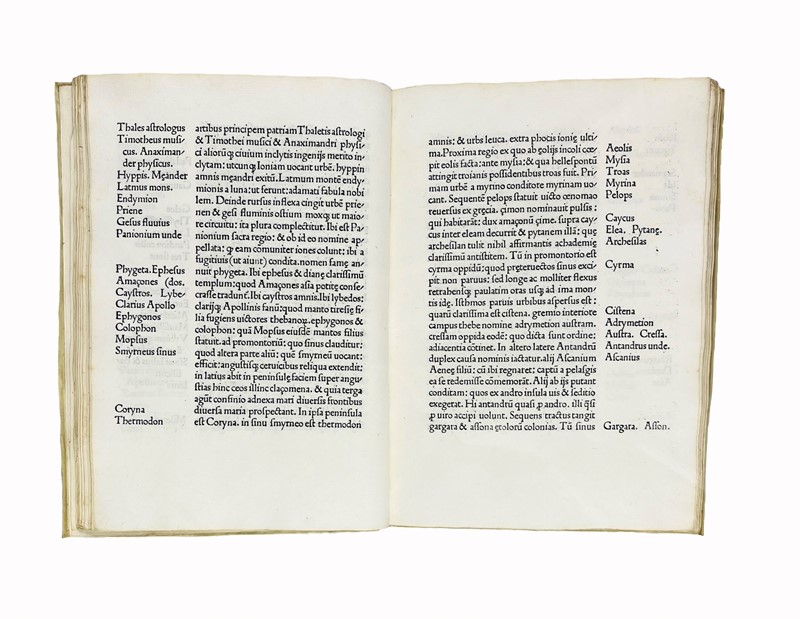 Thales astrologus
Timotheus musi-
cus. Anaximan-
der physicus.
Hyppis. Męander
Latmus mons.
Endymion
Priene
Gesus fluuius
Panionium unde
Phygeta. Ephesus
Amaçones (dos.
Caystros. Lybe-
Clarius Apollo
Ephygonos
Colophon
Mopsus
Smyrneus sinus
Coryna
Thermodon
artibus principem patriam Thaletis astrologi
& Timothei musici & Anaximandri physi-
ci aliorūq; ciuium inclytis ingenijs merito in-
clytam: utcunq; Ioniam uocant urbē. hyppin
amnis męandri exitū. Latmum montē endy-
mionis a luna: ut ferunt: adamati fabula nobi
lem. Deinde rursus inflexa cingit urbē prie-
nen & gesi fluminis ostium moxq; ut maio-
re circuitu: ita plura complectitur. Ibi est Pa-
nionium sacra regio: & ob id eo nomine ap-
pellata: q eam comuniter iones colunt: ibi a
fugitiuis (ut aiunt) condita. nomen famę an-
nuit phygeta. Ibi ephesus & dianę clarissimū
templum: quod Amaçones asia potitę conse-
crasse tradunt. Ibi caystros amnis. Ibi lybedos:
clarijq; Apollinis fanū: quod manto tiresię fi-
lia fugiens uictores thebanoꝝ. ephygonos &
colophon: quā Mopsus eiusdē mantos filius
statuit. ad promontoriū: quo sinus clauditur:
quod altera parte aliū: quē smyrneū uocant:
efficit: angustisq; ceruicibus reliqua extendit:
in latius abit in peninsulę faciem super angu-
stias hinc ceos illinc claçomena. & quia terga
agūt confinio adnexa mari diuersis frontibus
diuersa maria prospectant. In ipsa peninsula
est Coryna. in sinu smyrneo est thermodon
amnis: & urbs leuca. extra phocis ionię ulti-
ma. Proxima regio ex quo ab ęolijs incoli cœ-
pit eolis facta: ante mysia: & qua hellespontū
attingit troianis possidentibus troas fuit. Pri-
mam urbē a myrino conditore myrinam uo-
cant. Sequentē pelops statuit uicto œnomao
reuersus ex gręcia. çimon nominauit pulsis:
qui habitarāt: dux amaçonū çime. supra cay-
cus inter eleam decurrit & pytanem illā: quę
archesilan tulit nihil affirmantis achademię
clarissimū antistitem. Tū in promontorio est
cyrma oppidū: quod pręteruectos sinus exci-
pit non paruus: sed longe ac molliter flexus
retrahensq; paulatim oras usq; ad ima mon-
tis idę. Isthmos paruis urbibus aspersus est:
quarū clarissima est cistena. gremio interiore
campus thebe nomine adrymetion austram.
cressam oppida eodē: quo dicta sunt ordine:
adiacentia cōtinet. In altero latere Antandrū
duplex causa nominis iactatur. alij Ascanium
Aeneę filiū: cū ibi regnaret: captū a pelasgis
ea se redemisse cōmemorāt. Alij ab ijs putant
conditam: quos ex andro insula uis & seditio
exegetat. Hi antandrū quasi ꝓ andro. illi q̄si
ꝓ uiro accipi uolunt. Sequens tractus tangit
gargara & assona ętolorū colonias. Tū sinus
Aeolis
Mysia
Troas
Myrina
Pelops
Caycus
Elea. Pytanę.
Archesilas
Cyrma
Cistena
Adrymetion
Austra. Cressa.
Antandrus unde.
Ascanius
Gargara. Asson.